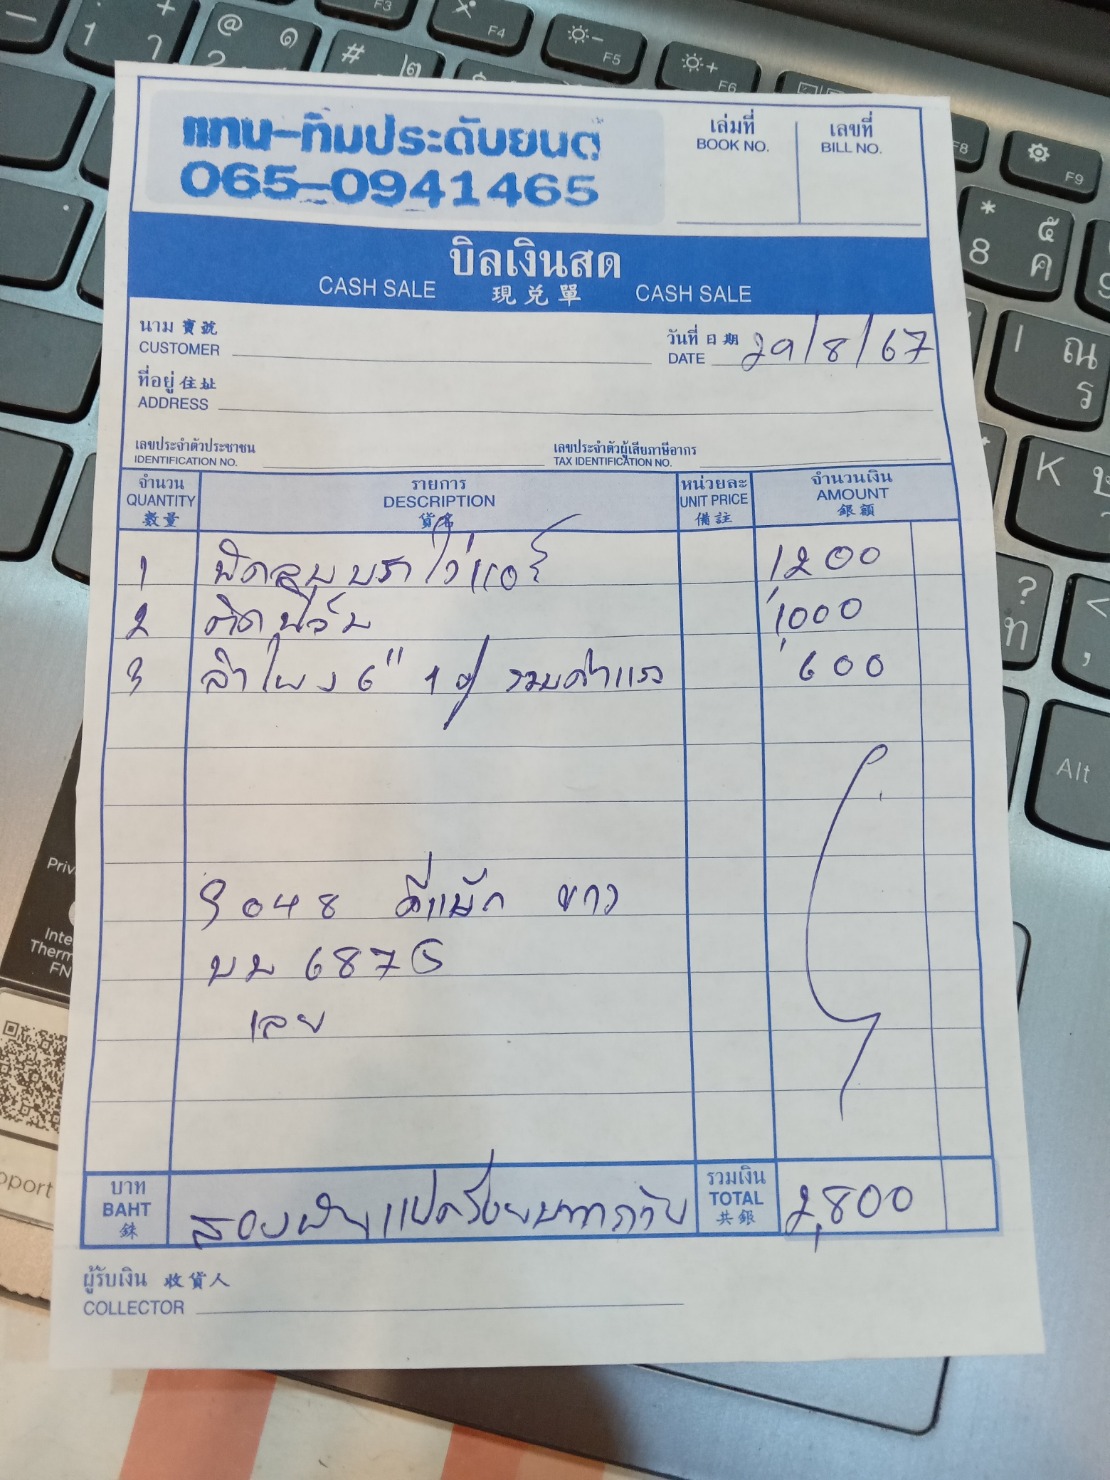 แทน-ทิมประดับยนต์
065-0941465
เล่มที่
BOOK NO.
เลขที่
BILL NO.
บิลเงินสด
CASH SALE 現兑單 CASH SALE
นาม 寶號
CUSTOMER
วันที่ 日期
DATE 29/8/67
ที่อยู่ 住址
ADDRESS
เลขประจำตัวประชาชน
IDENTIFICATION NO.
เลขประจำตัวผู้เสียภาษีอากร
TAX IDENTIFICATION NO.
จำนวน
QUANTITY
數量
รายการ
DESCRIPTION
貨名
หน่วยละ
UNIT PRICE
備註
จำนวนเงิน
AMOUNT
銀額
1 1200
2 ติดฟิล์ม 1000
3 ลำโพง 6" 1 คู่ รวมค่าแรง 600
9048 ดีแม็ก ขาว
บม 6875
เลย
บาท
BAHT
銖
สองพันแปดร้อยบาทถ้วน
รวมเงิน
TOTAL
共銀
2,800
ผู้รับเงิน 收貨人
COLLECTOR
F3
F4
F5
F6
F8
F9
Alt